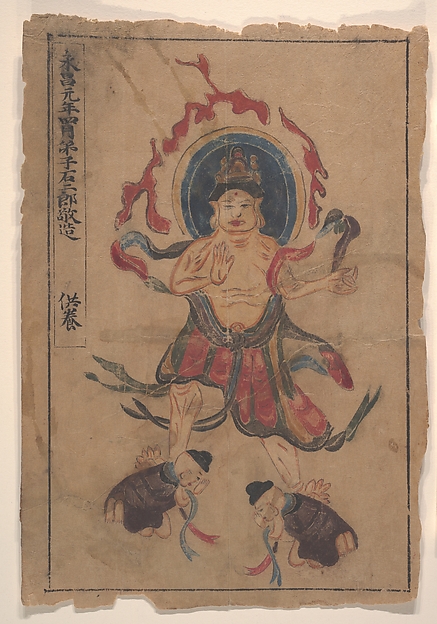 永昌元年四月弟子石三郎敬造
供養